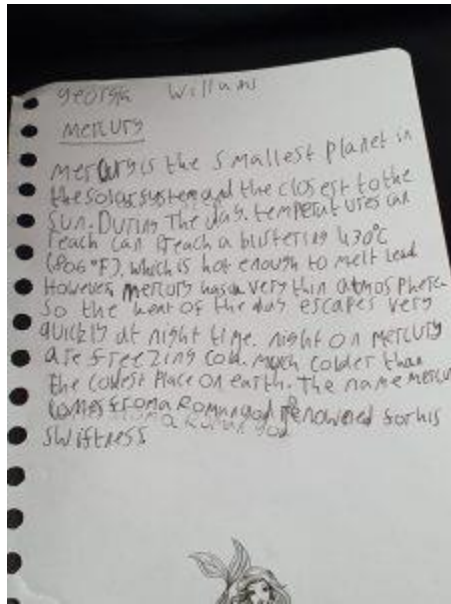 georgia Willams
Mercury
Mercury is the smallest planet in
the solar system and the closest to the
sun. During The day. temperatures can
reach can reach a blistering 430°C
(806°F). which is hot enough to melt lead
However Mercury has a very thin atmosphere
so the heat of the day escapes very
quickly at night time. night on Mercury
are freezing cold. much colder than
the coldest place on earth. The name Mercury
comes from a Roman god renowered for his
swiftness